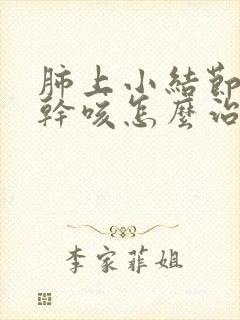 肺上小結節
幹咳怎麼治
李家菲姐